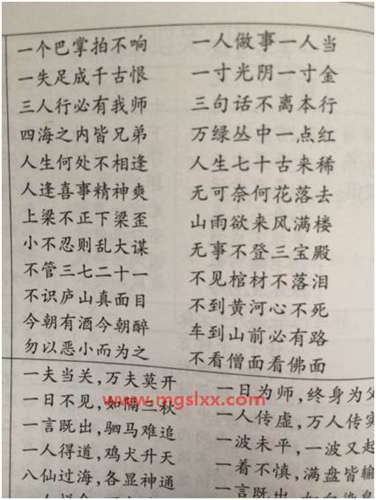 一个巴掌拍不响
一失足成千古恨
三人行必有我师
四海之内皆兄弟
人生何处不相逢
人逢喜事精神爽
上梁不正下梁歪
小不忍则乱大谋
不管三七二十一
不识庐山真面目
今朝有酒今朝醉
勿以恶小而为之
一人做事一人当
一寸光阴一寸金
三句话不离本行
万绿丛中一点红
人生七十古来稀
无可奈何花落去
山雨欲来风满楼
无事不登三宝殿
不见棺材不落泪
不到黄河心不死
车到山前必有路
不看僧面看佛面
一夫当关，万夫莫开
一日不见，如隔三秋
一言既出，驷马难追
一人得道，鸡犬升天
八仙过海，各显神通
一日为师，终身为父
一人传虚，万人传实
一波未平，一波又起
一着不慎，满盘皆输
一言既出
www.mgslxx.com